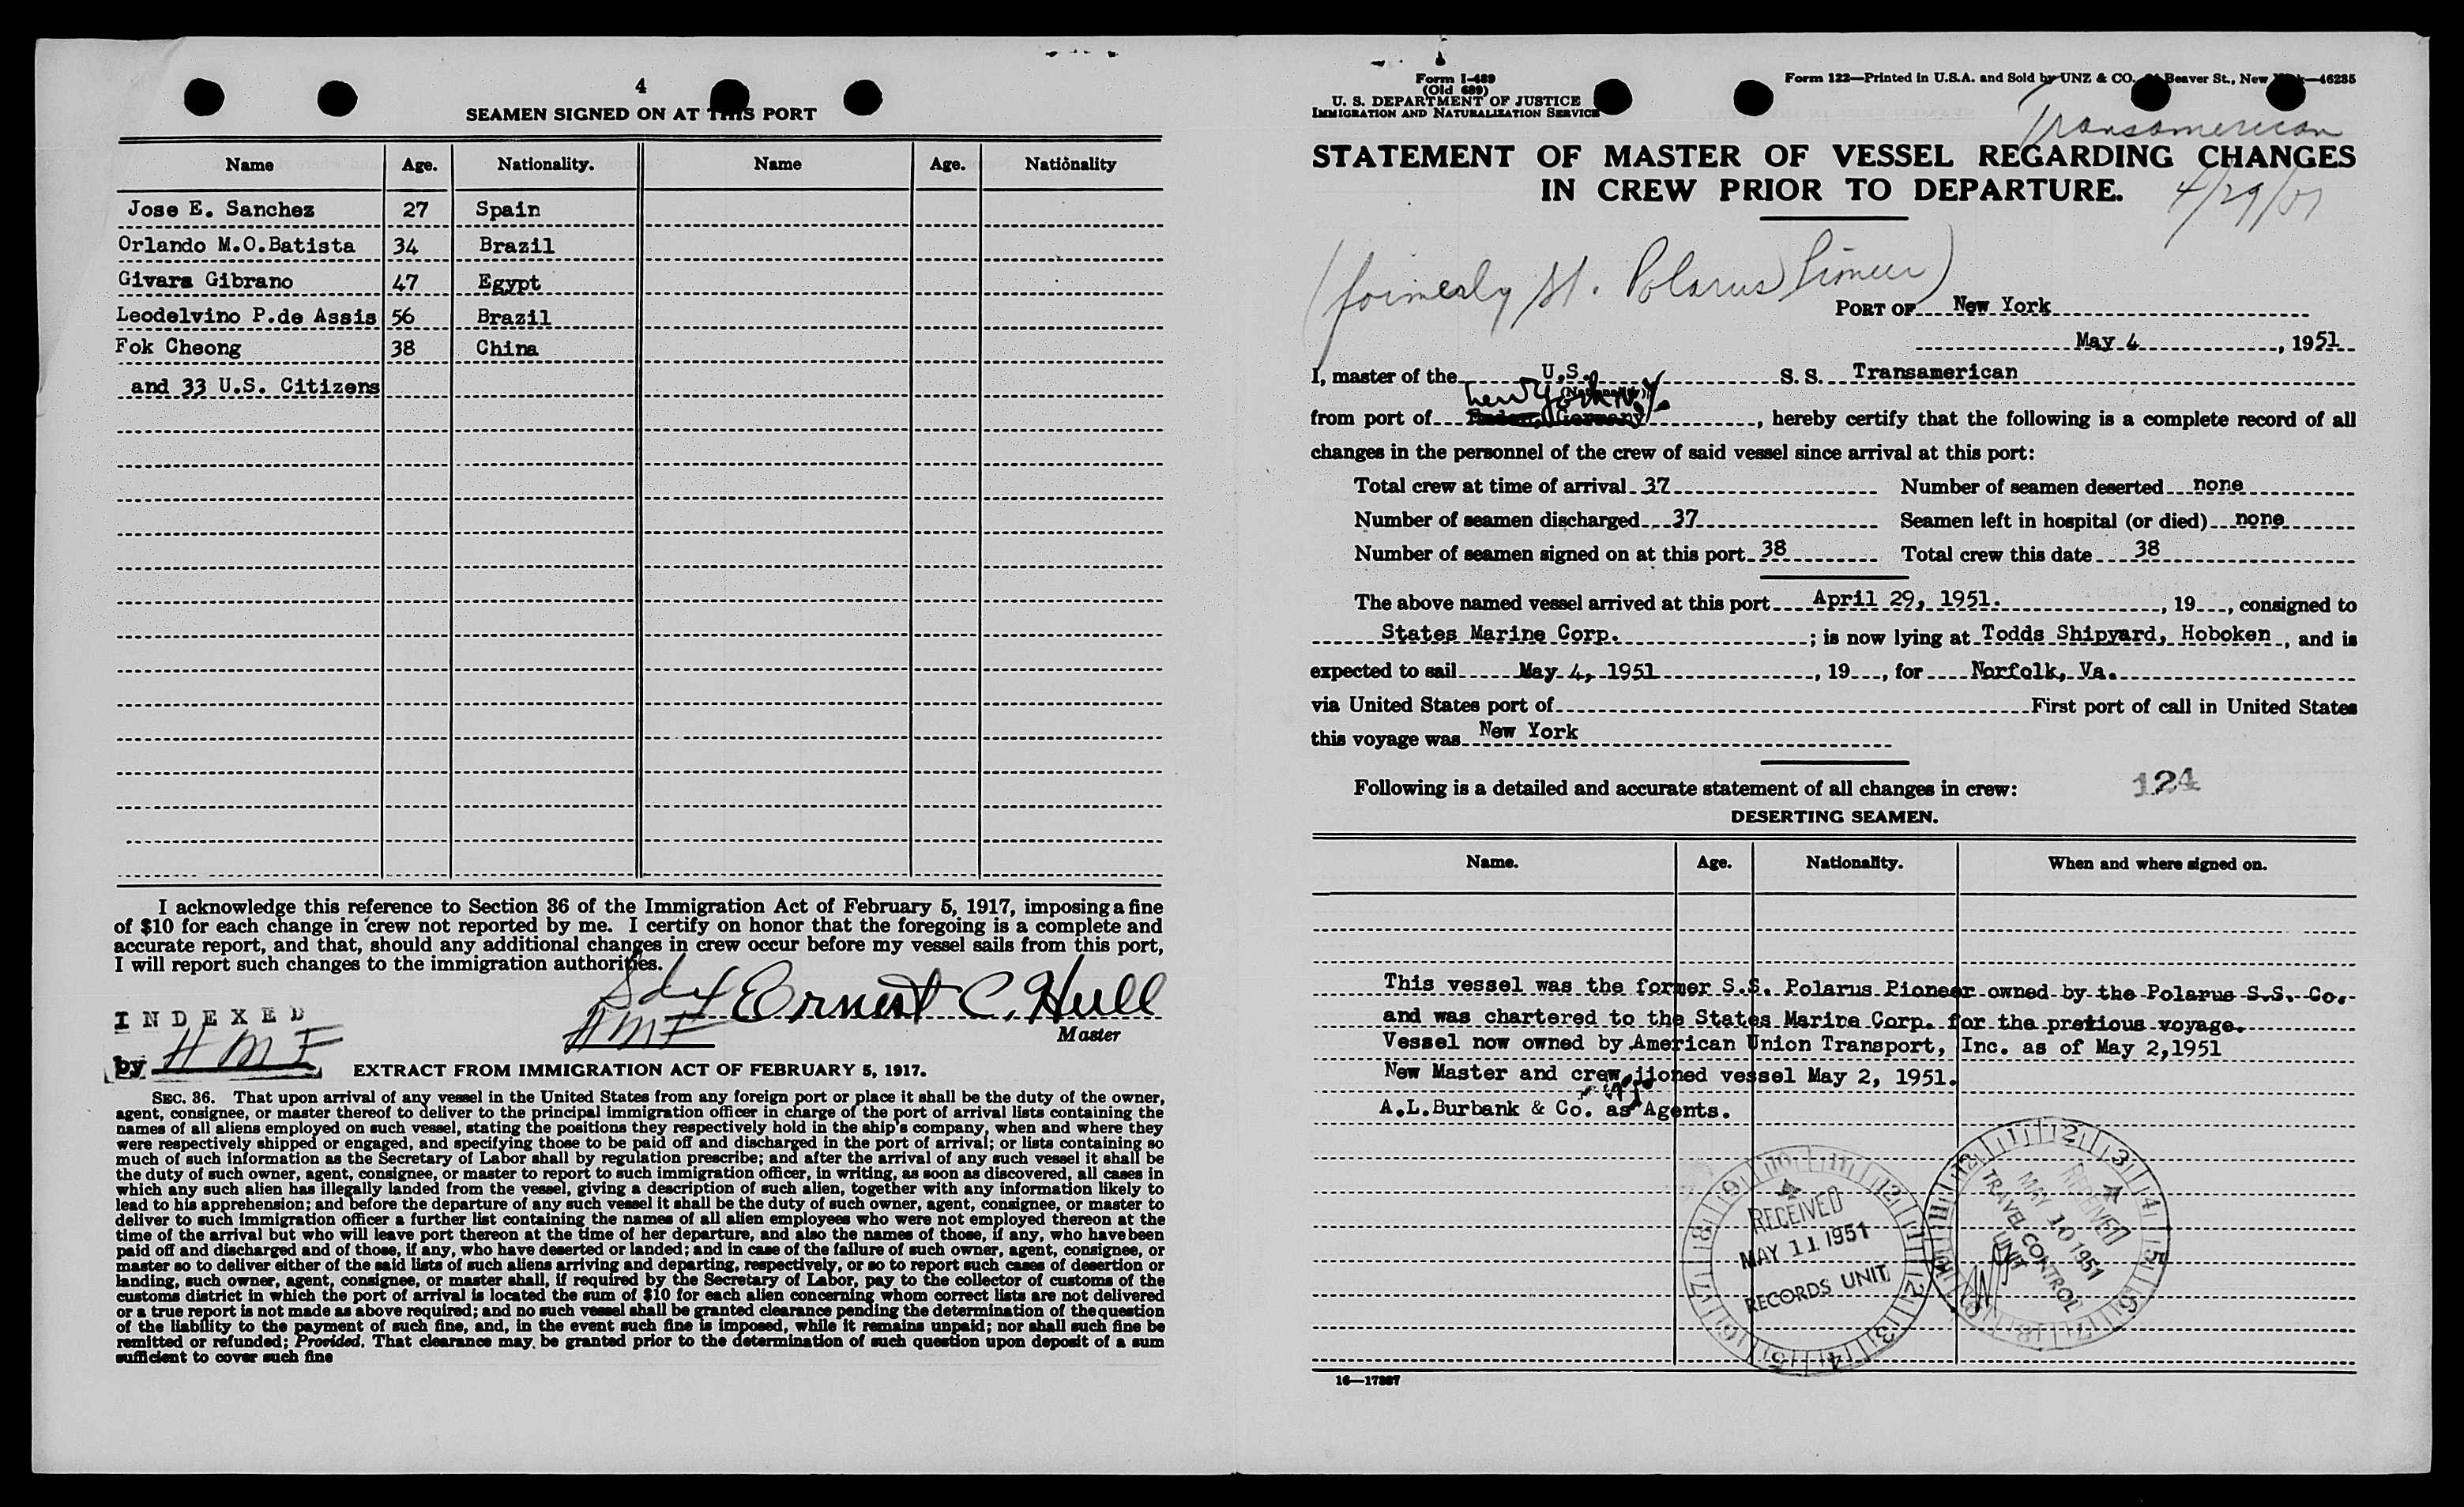 4
SEAMEN SIGNED ON AT THIS PORT
Name Age. Nationality. Name Age. Nationality
Jose E. Sanchez 27 Spain
Orlando M.O.Batista 34 Brazil
Givara Gibrano 47 Egypt
Leodelvino P.de Assis 56 Brazil
Fok Cheong 38 China
and 33 U.S. Citizens
I acknowledge this reference to Section 36 of the Immigration Act of February 5, 1917, imposing a fine
of $10 for each change in crew not reported by me. I certify on honor that the foregoing is a complete and
accurate report, and that, should any additional changes in crew occur before my vessel sails from this port,
I will report such changes to the immigration authorities.
Sdy Ernest C. Hull
HMF
Master
INDEXED
by HMF
EXTRACT FROM IMMIGRATION ACT OF FEBRUARY 5, 1917.
SEC. 36. That upon arrival of any vessel in the United States from any foreign port or place it shall be the duty of the owner,
agent, consignee, or master thereof to deliver to the principal immigration officer in charge of the port of arrival lists containing the
names of all aliens employed on such vessel, stating the positions they respectively hold in the ship's company, when and where they
were respectively shipped or engaged, and specifying those to be paid off and discharged in the port of arrival; or lists containing so
much of such information as the Secretary of Labor shall by regulation prescribe; and after the arrival of any such vessel it shall be
the duty of such owner, agent, consignee, or master to report to such immigration officer, in writing, as soon as discovered, all cases in
which any such alien has illegally landed from the vessel, giving a description of such alien, together with any information likely to
lead to his apprehension; and before the departure of any such vessel it shall be the duty of such owner, agent, consignee, or master to
deliver to such immigration officer a further list containing the names of all alien employees who were not employed thereon at the
time of the arrival but who will leave port thereon at the time of her departure, and also the names of those, if any, who have been
paid off and discharged and of those, if any, who have deserted or landed; and in case of the failure of such owner, agent, consignee, or
master so to deliver either of the said lists of such aliens arriving and departing, respectively, or so to report such cases of desertion or
landing, such owner, agent, consignee, or master shall, if required by the Secretary of Labor, pay to the collector of customs of the
customs district in which the port of arrival is located the sum of $10 for each alien concerning whom correct lists are not delivered
or a true report is not made as above required; and no such vessel shall be granted clearance pending the determination of the question
of the liability to the payment of such fine, and, in the event such fine is imposed, while it remains unpaid; nor shall such fine be
remitted or refunded; Provided, That clearance may be granted prior to the determination of such question upon deposit of a sum
sufficient to cover such fine
Form I-489
(Old 689)
U. S. DEPARTMENT OF JUSTICE
IMMIGRATION AND NATURALIZATION SERVICE
Form 122—Printed in U.S.A. and Sold by UNZ & CO. Beaver St., New York—46235
Transamerican
STATEMENT OF MASTER OF VESSEL REGARDING CHANGES
IN CREW PRIOR TO DEPARTURE.
4/29/51
(formerly St. Polarus Pioneer)
PORT OF New York
May 4, 1951
I, master of the U.S. S. S. Transamerican
New York N.Y.
from port of Emden, Germany, hereby certify that the following is a complete record of all
changes in the personnel of the crew of said vessel since arrival at this port:
Total crew at time of arrival 37 Number of seamen deserted none
Number of seamen discharged 37 Seamen left in hospital (or died) none
Number of seamen signed on at this port 38 Total crew this date 38
The above named vessel arrived at this port April 29, 1951., 19, consigned to
States Marine Corp.; is now lying at Todds Shipyard, Hoboken, and is
expected to sail May 4, 1951, 19, for Norfolk, Va.
via United States port of First port of call in United States
this voyage was New York
Following is a detailed and accurate statement of all changes in crew:
124
DESERTING SEAMEN.
Name. Age. Nationality. When and where signed on.
This vessel was the former S.S. Polarus Pioneer owned by the Polarus S.S. Co.
and was chartered to the States Marine Corp. for the pretious voyage.
Vessel now owned by American Union Transport, Inc. as of May 2,1951
New Master and crew jioned vessel May 2, 1951.
A.L.Burbank & Co. as Agents.
RECEIVED
MAY 11 1951
RECORDS UNIT
RECEIVED
MAY 10 1951
TRAVEL CONTROL
UNIT
16—17287